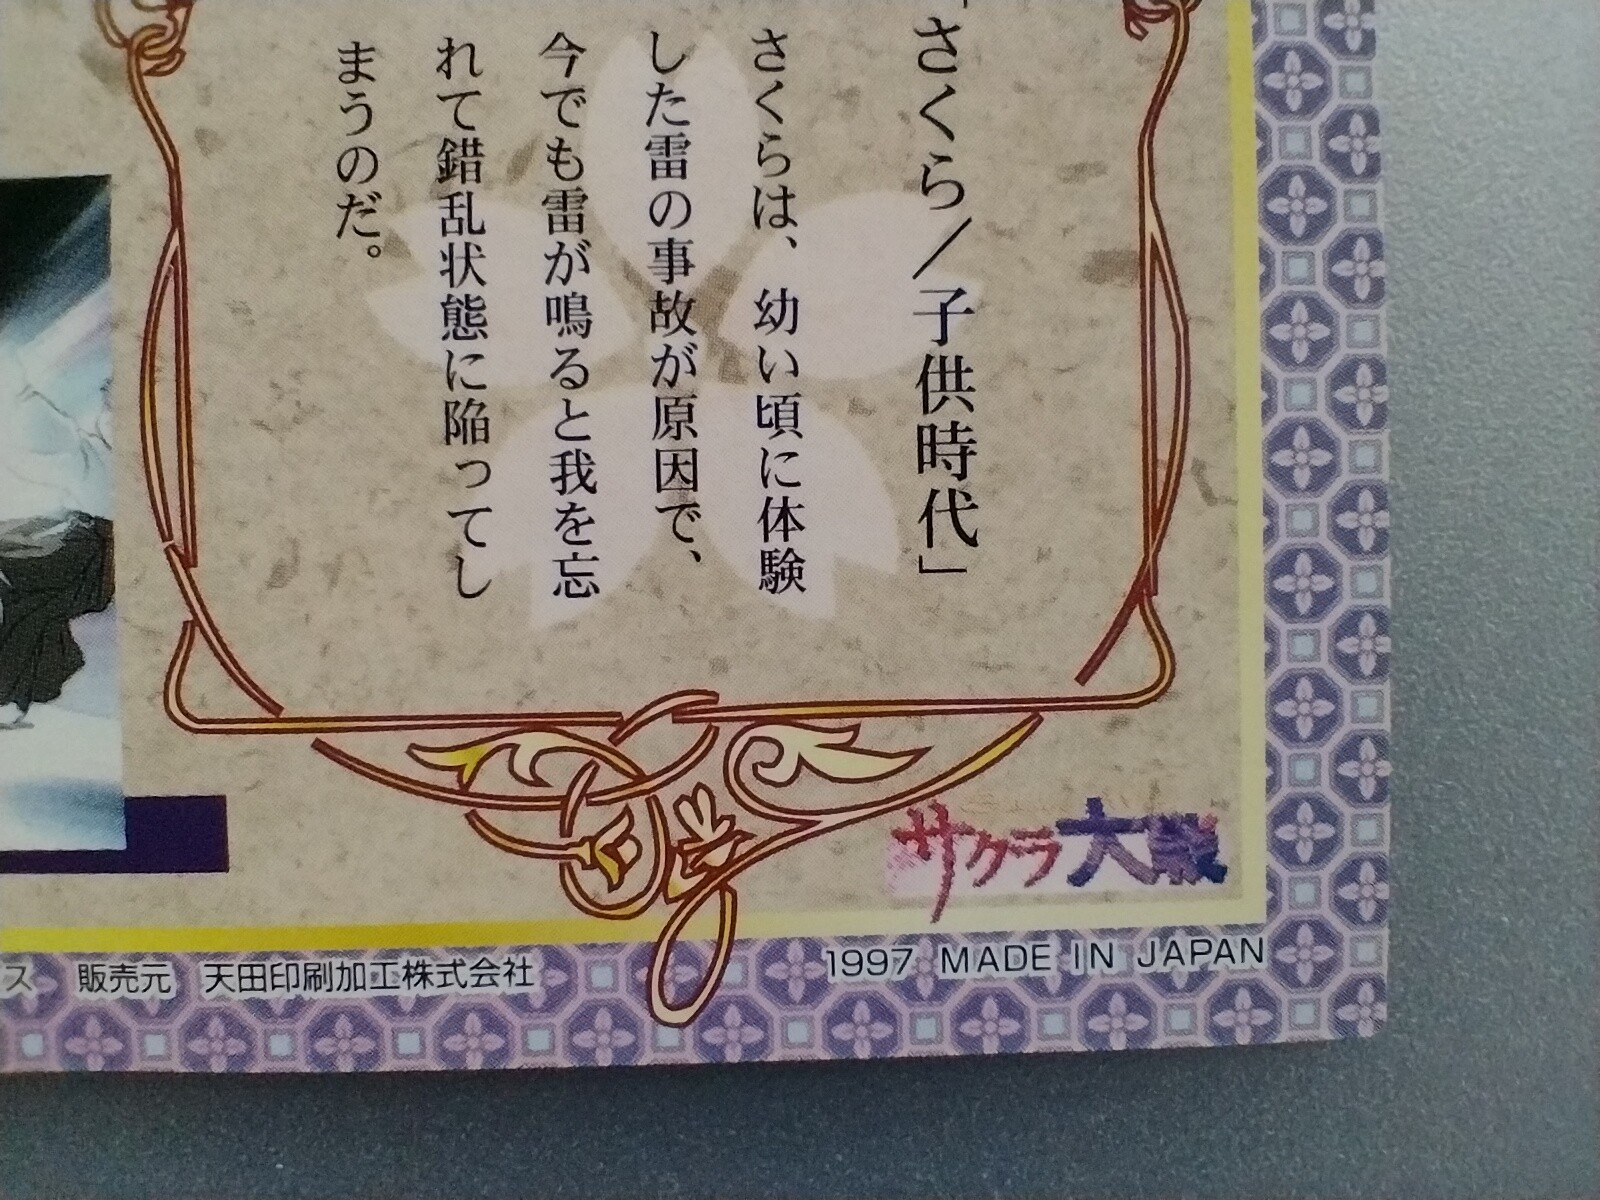 「さくら／子供時代」
さくらは、幼い頃に体験
した雷の事故が原因で、
今でも雷が鳴ると我を忘
れて錯乱状態に陥ってし
まうのだ。
サクラ大戦
ス 販売元 天田印刷加工株式会社
1997 MADE IN JAPAN